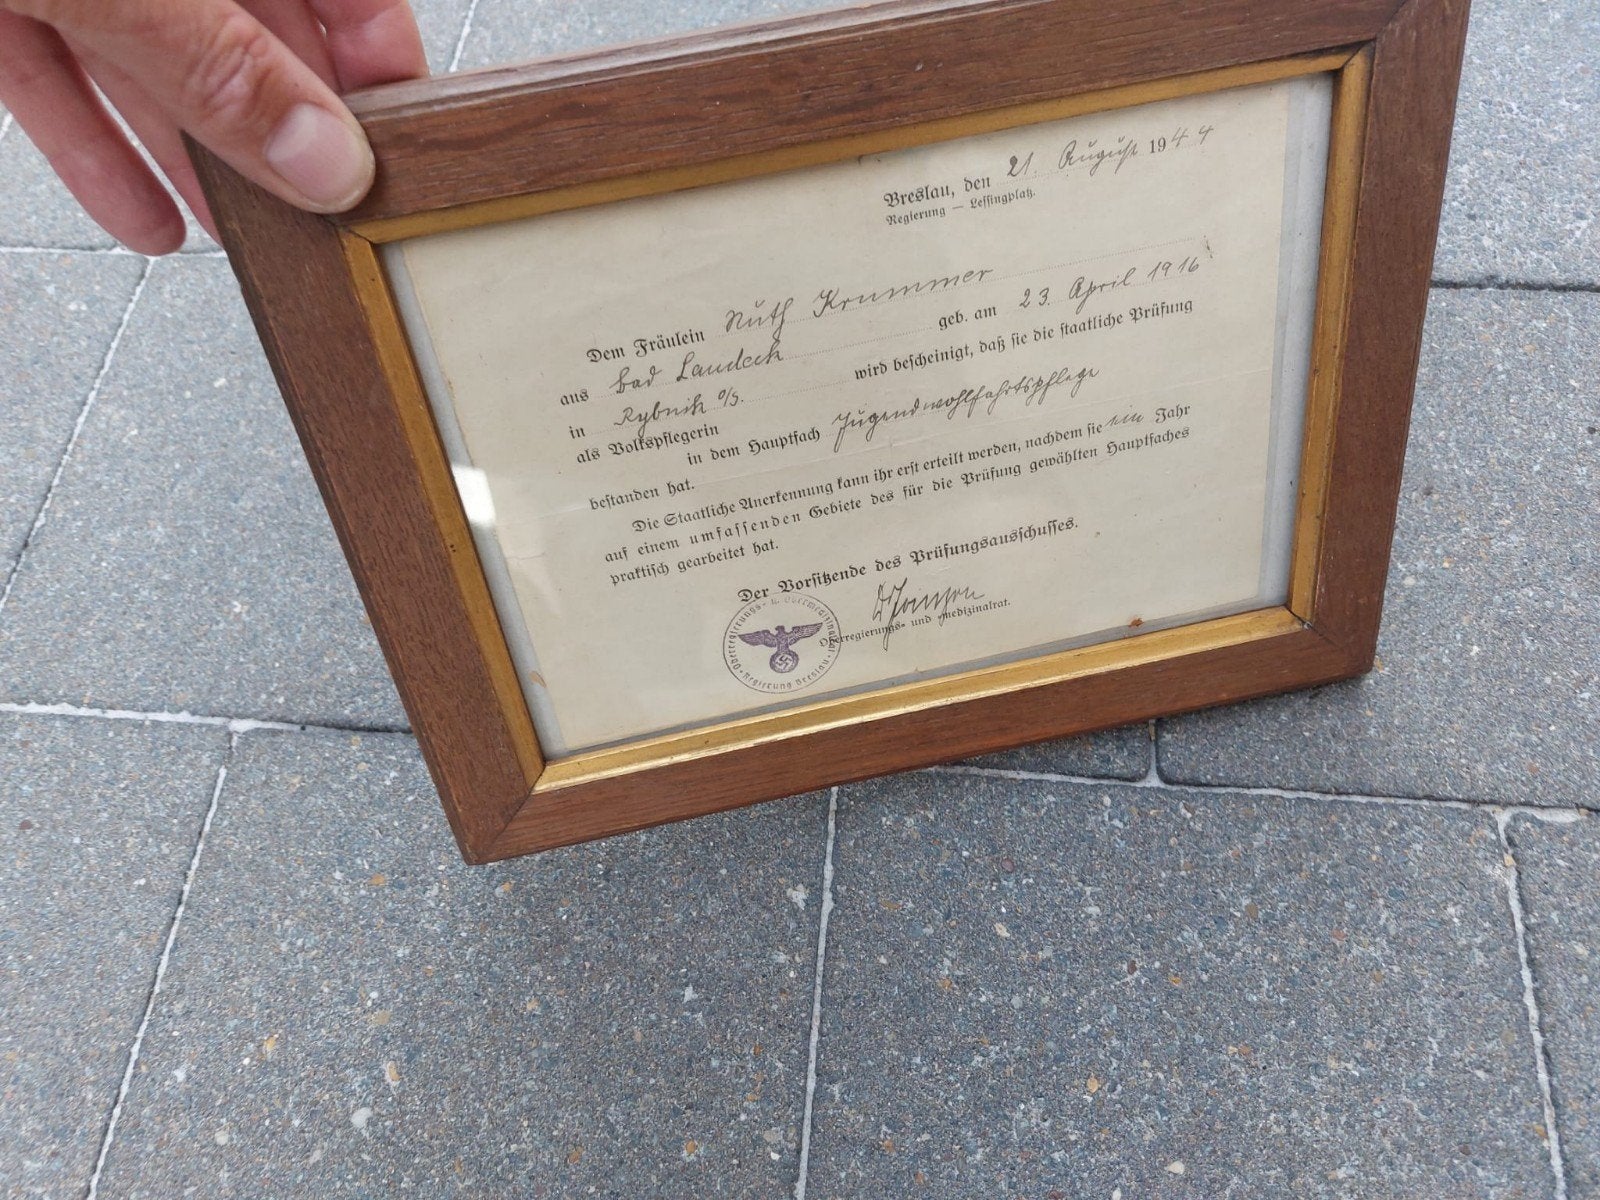 Breslau, den 21. August 1944
Regierung — Lessingplatz.
Dem Fräulein Ruth Krummer
aus Bad Landeck geb. am 23. April 1916
in Rybnik O/S. wird bescheinigt, daß sie die staatliche Prüfung
als Volkspflegerin
in dem Hauptfach Jugendwohlfahrtspflege
bestanden hat.
Die Staatliche Anerkennung kann ihr erst erteilt werden, nachdem sie ein Jahr
auf einem umfassenden Gebiete des für die Prüfung gewählten Hauptfaches
praktisch gearbeitet hat.
Der Vorsitzende des Prüfungsausschusses.
Oberregierungs- und -medizinalrat.
Oberregierungs- u. Obermedizinalrat
Regierung Breslau